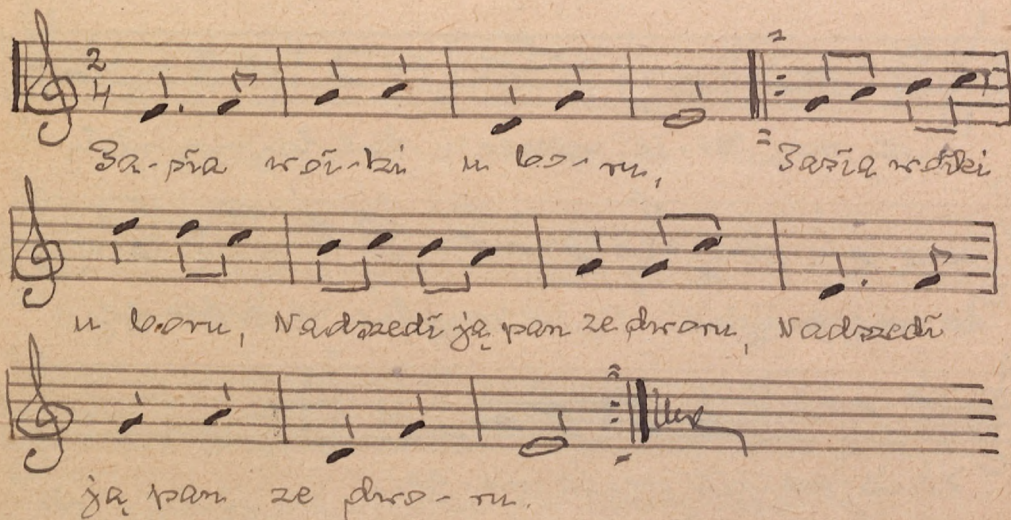 2
4
Za-pła wół-ki u bo-ru, Zapła wółki
u boru, Nadszedł ją pan ze dworu, Nadszedł
ją pan ze dwo-ru.